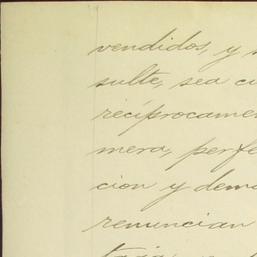 vendidos, y
sulte, sea cu
recíprocamen
mera, perfe
cion y dem
renuncian